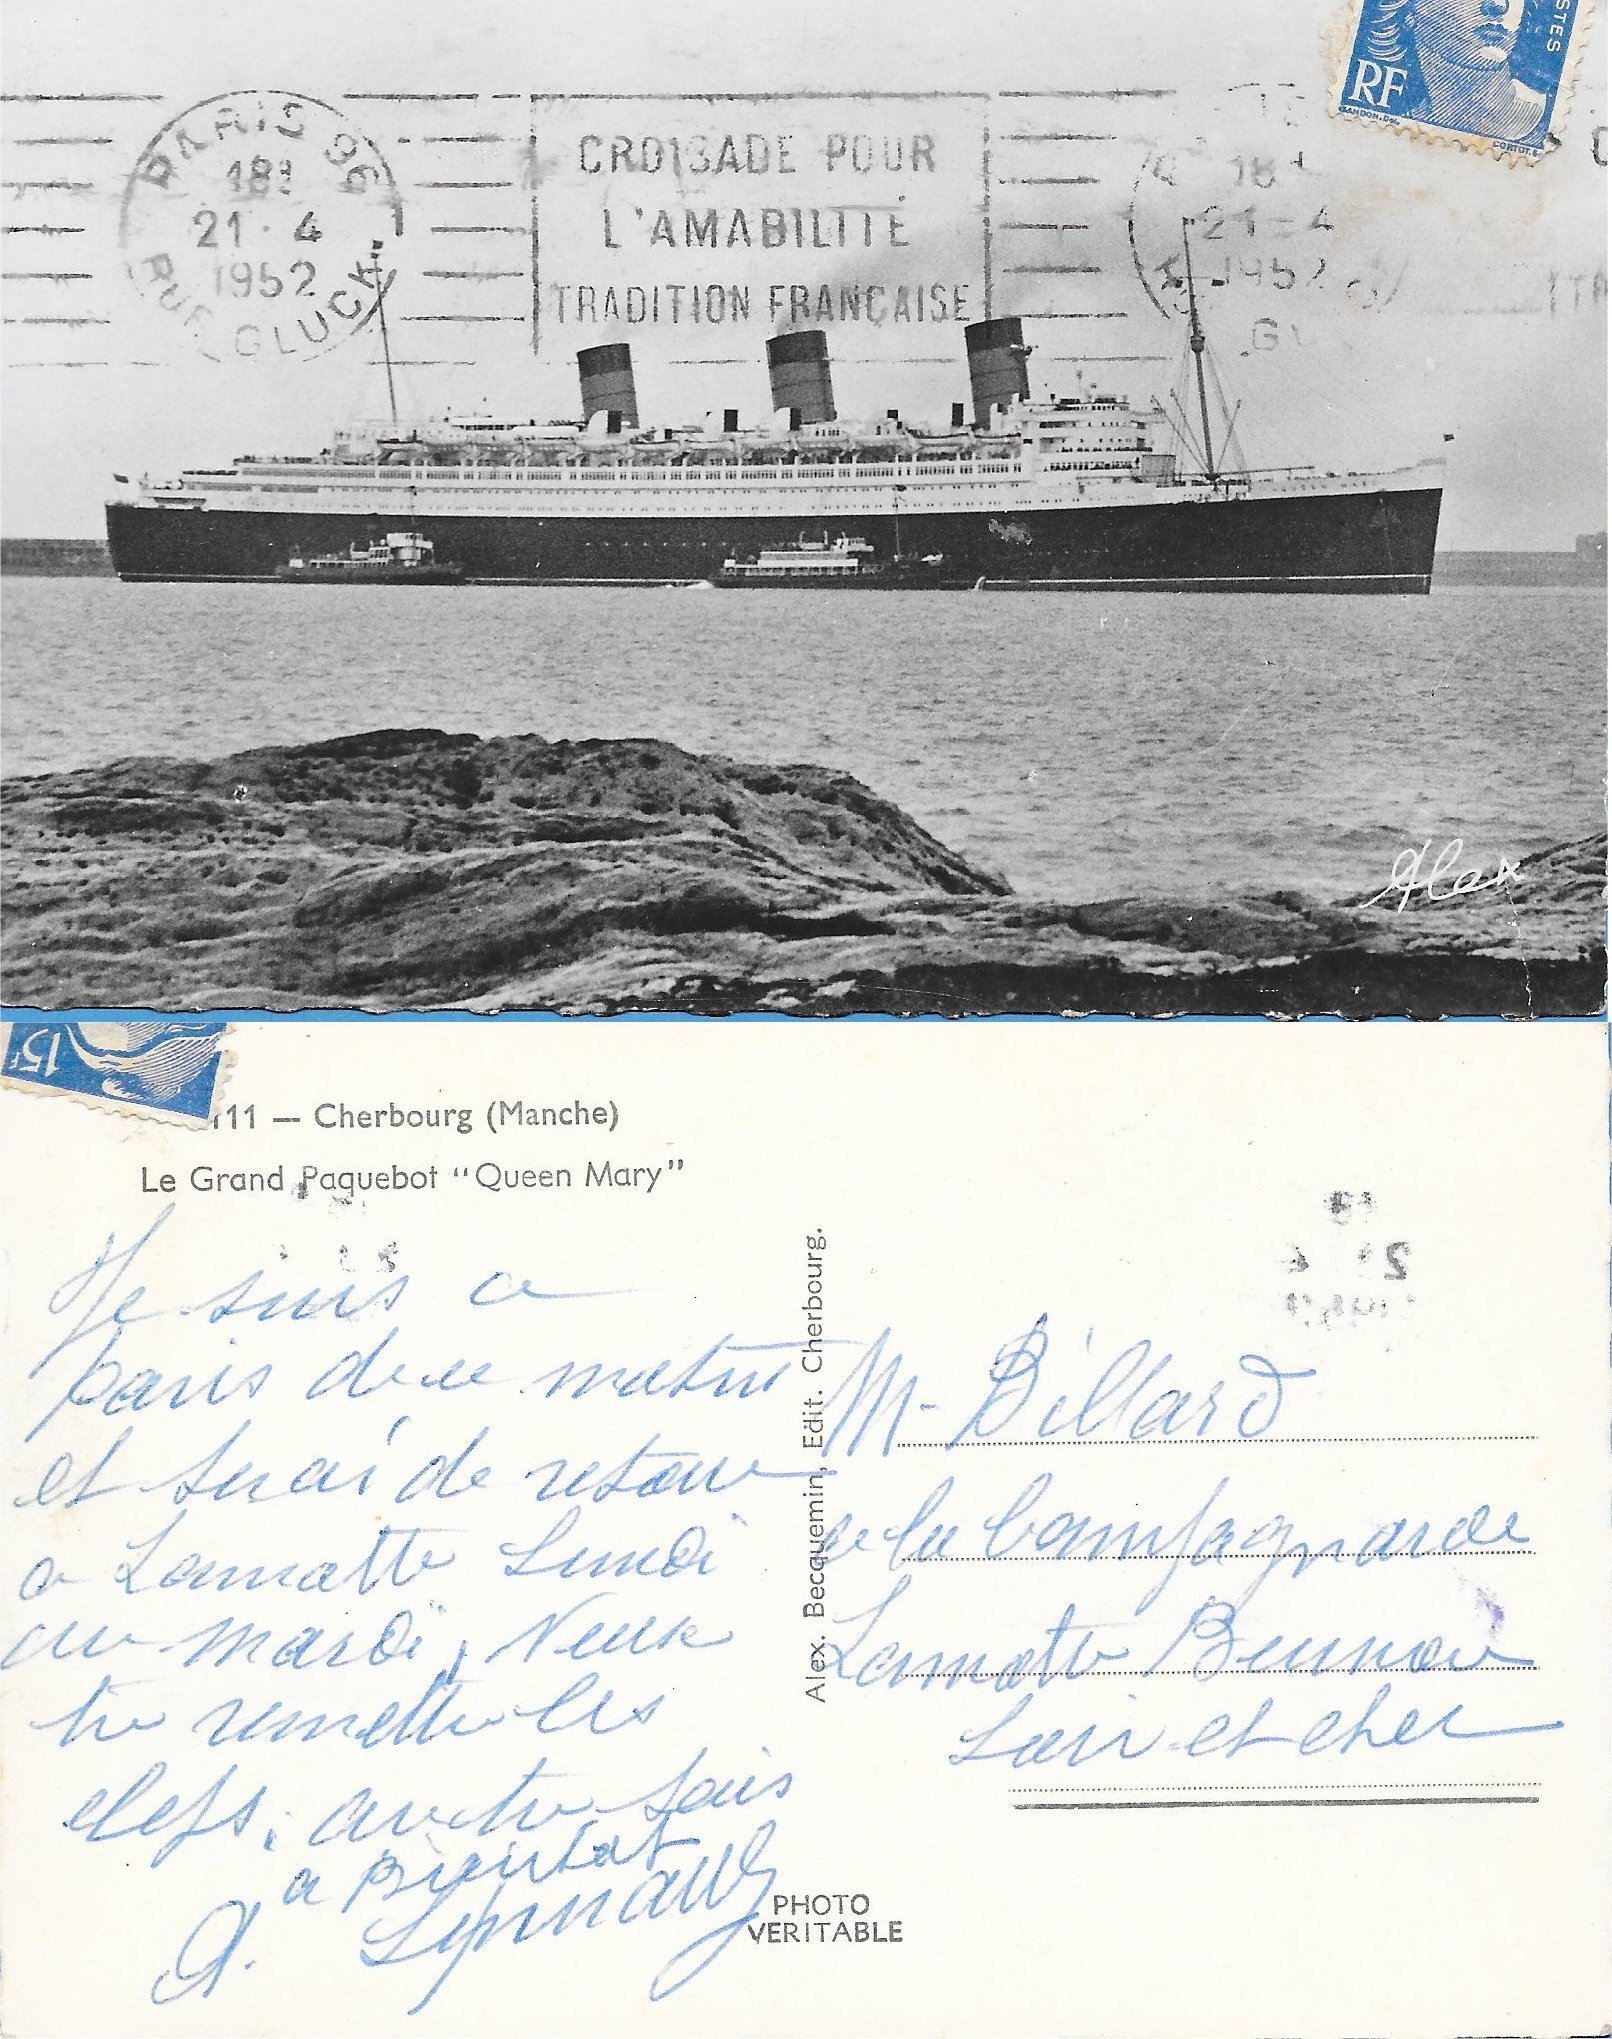 POSTES
RF
GANDON.Del.
CORTOT.
PARIS 96
18
21 - 4
1952
RUE GLUCK
CROISADE POUR
L'AMABILITÉ
TRADITION FRANÇAISE
18
21 - 4
1952
Alex
15F
111 — Cherbourg (Manche)
Le Grand Paquebot "Queen Mary"
Je suis a
paris de ce matin
et serai de retour
a Lamotte Lundi
ou mardi, Veux
tu remettre les
clefs, au tu sais
a Bientot
Alex. Becquemin, Edit. Cherbourg.
M. Billard
de la Campagnarde
Lamotte Beuvron
Loir et cher
PHOTO
VERITABLE